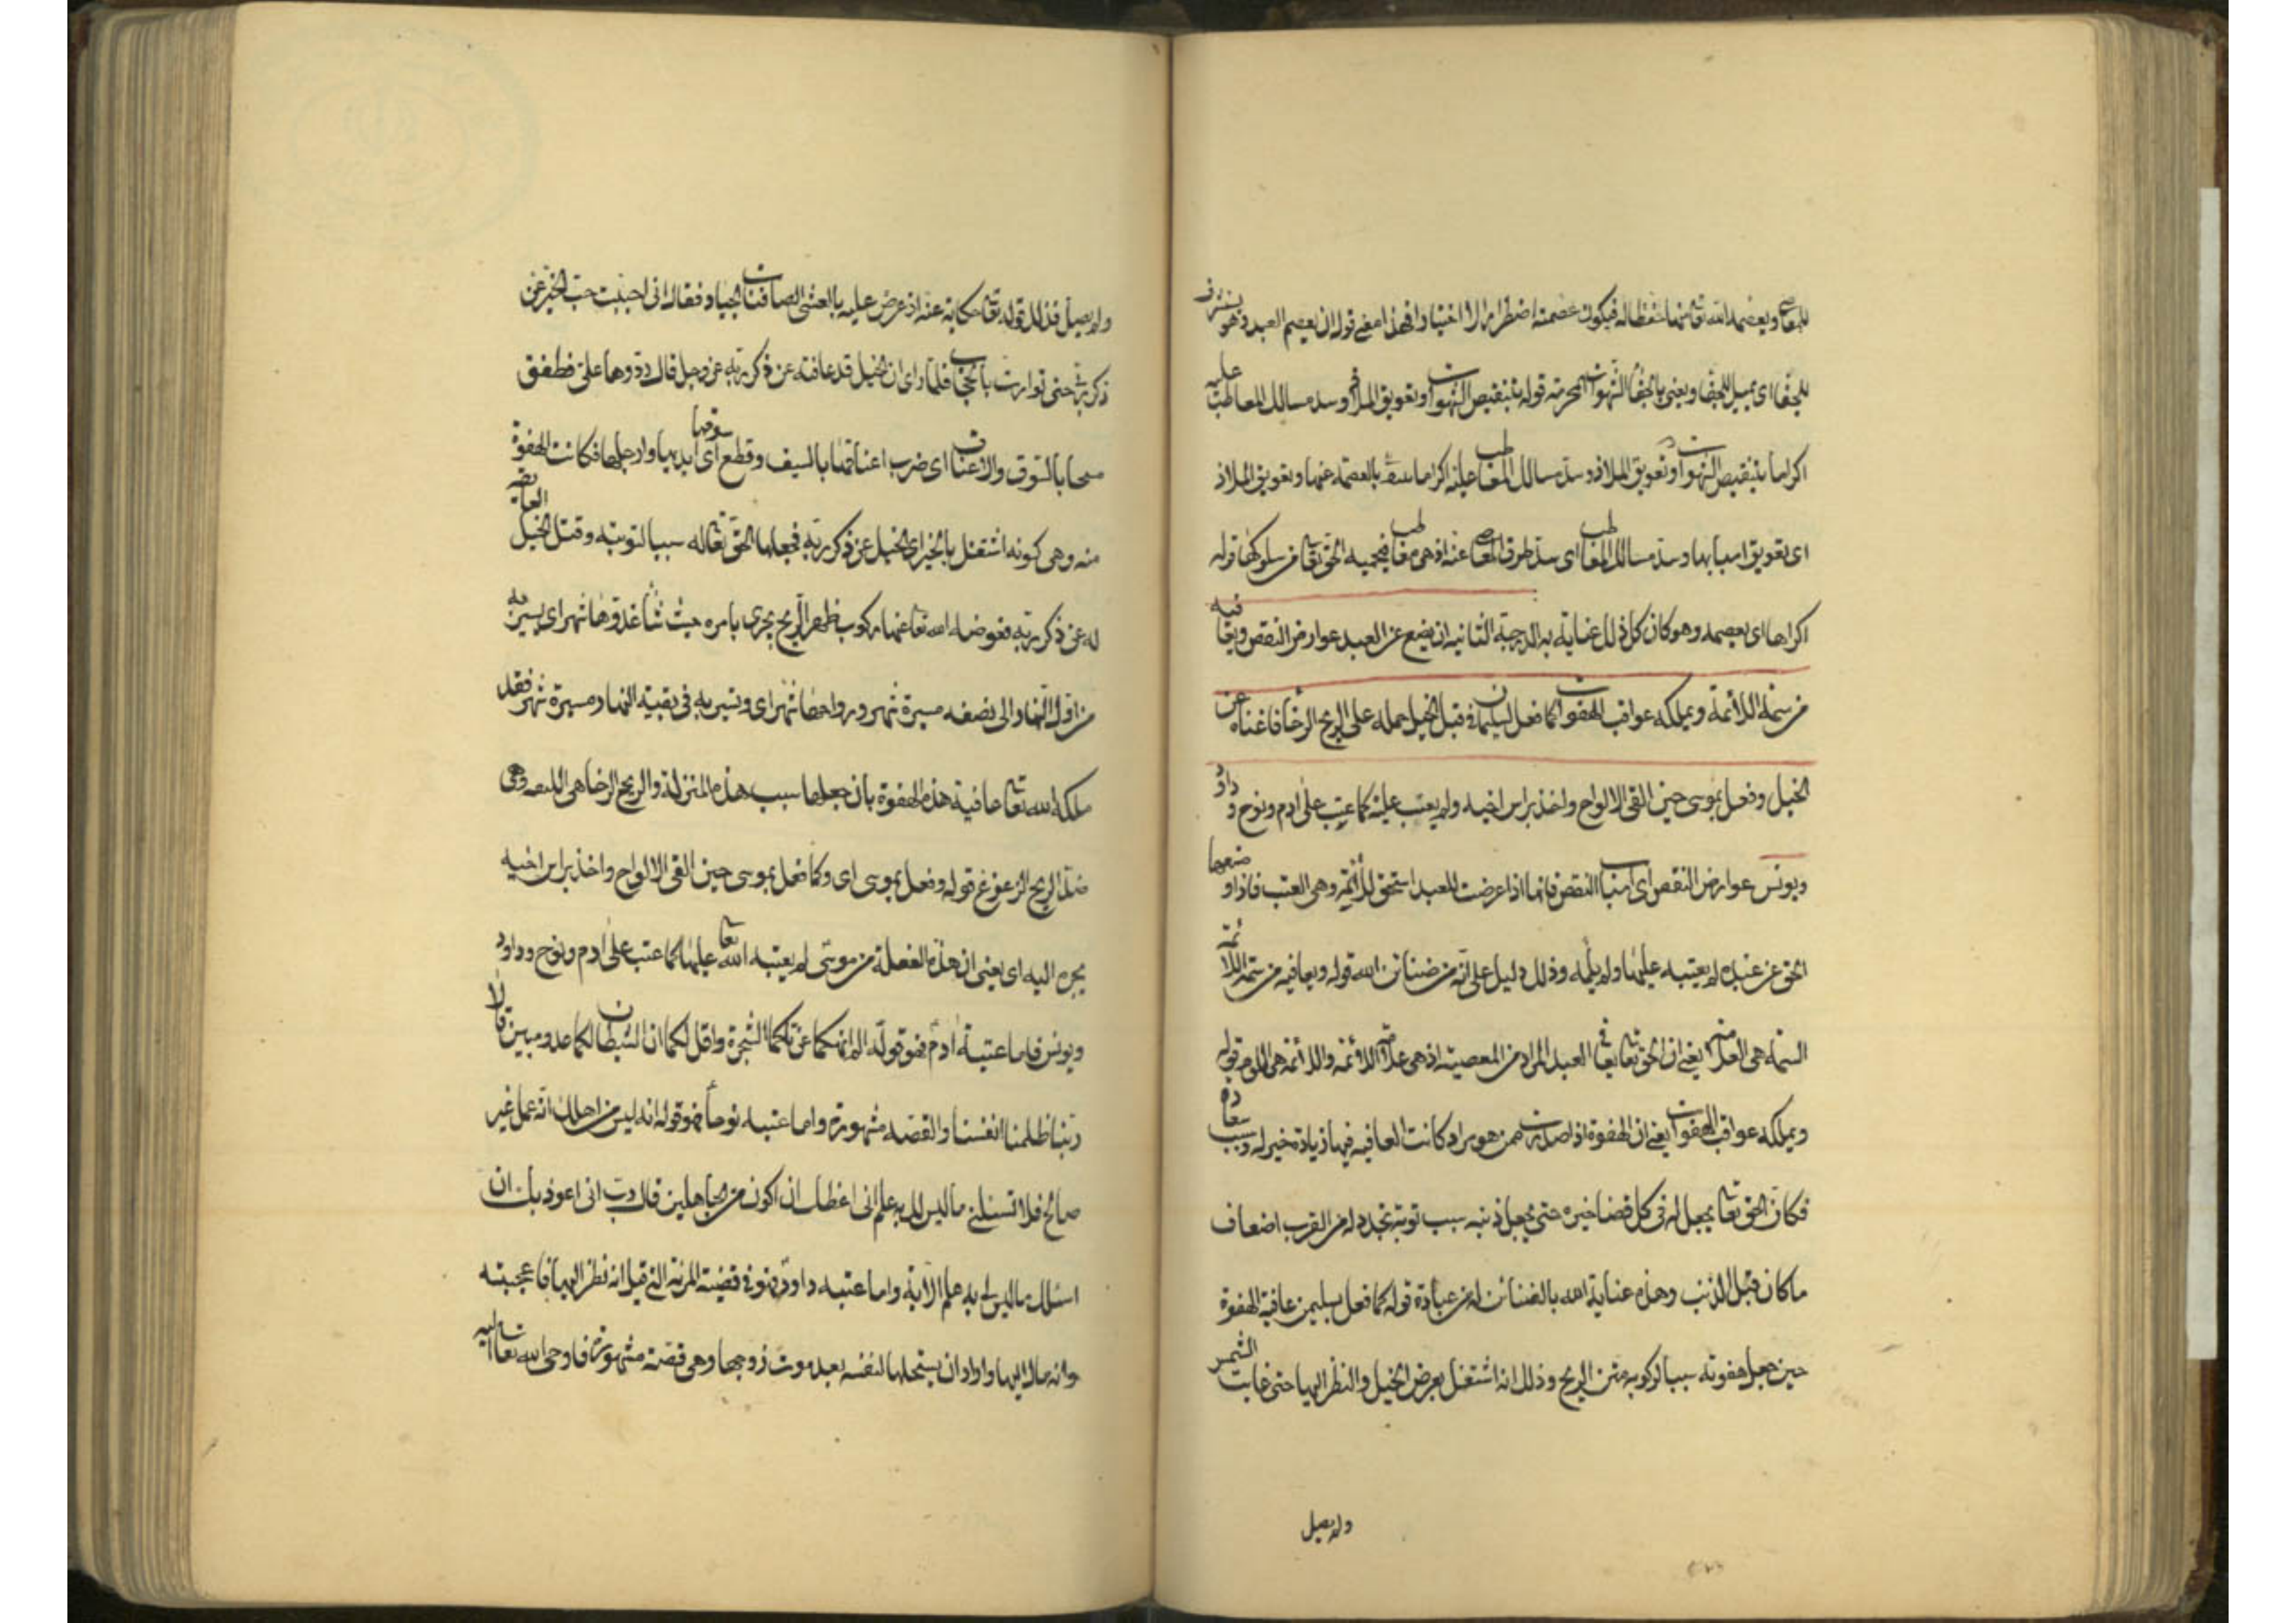 للمعاصى ويعصمه الله تعالى منها حفظا له فيكون عصمته اضطرارا لا اختيارا فهذا معنى قوله ان يعصم العبد وهو يستشرف
للجفا اى يميل للجفا ويعنى بالجفا الشهوات المحرمة قوله بتنقيص الشهوات وتعويق الملاذ وسد مسالك المعاطب عليه
اكراما بتنقيص الشهوات وتعويق الملاذ وسد مسالك المعاطب عليه اكراما بالعصمة عنها وتعويق الملاذ
اى تعويق اسبابها وسد مسالك المعاطب اى سد طرق المعاصى عنه اذ هى معاطب فيحميه الحق تعالى من سلوكها قوله
اكراها اى يعصمه وهو كان كل ذلك عناية به الدرجة الثانية ان يضع عن العبد عوارض النقص ويعافيه
من سمة اللائمة ويملكه عواقب الهفوات كما فعل لسليمان فى قتل الخيل حمله على الريح الرخا فاغناه عن
الخيل وفعل بموسى حين القى الالواح واخذ براس اخيه ولم يعتب عليه كما عتب على ادم ونوح وداود
ويونس عوارض النقص اى اسباب النقص فانها اذا عرضت للعبد استحق اللائمة وهى العتب فاذا وضعها
الحق عن عبده لم يعتبه عليها ولم يلمه وذلك دليل على انه من ضنائن الله قوله ويعافيه من سمة اللائمة
السمة هى العلامة يعنى ان الحق تعالى يعافى العبد المراد من المعصية اذ هى علامة اللائمة واللائمة هى اللوم قوله
ويملكه عواقب الهفوات يعنى ان الهفوة اذا صدرت ممن هو مراد كانت العافية فيها زيادة خير له وسبب سعادة
فكان الحق تعالى يجعل له فى كل قضا خيره حتى يجعل ذنبه سبب توبة تجدد له من القرب اضعاف
ما كان قبل الذنب وهذه عناية الله بالضنائن له من عباده قوله كما فعل بسليمن عافية الهفوة
حين جعل هفوته سببا لركوبه متن الريح وذلك انه اشتغل بعرض الخيل والنظر اليها حتى غابت الشمس
ولم يصل
ولم يصل فذلك قوله تعالى حكاية عنه اذ عرض عليه بالعشى الصافنات الجياد فقال انى احببت حب الخير عن
ذكر ربى حتى توارت بالحجاب فلما راى ان الخيل قد عاقته عن ذكر ربه عز وجل قال ردوها على فطفق
مسحا بالسوق والاعناق اى ضرب اعناقها بالسيف وقطع سوقها اى ايديها وارجلها فكانت الهفوة
منه وهى كونه اشتغل بالخير اى الخيل عن ذكر ربه فجعلها الحق تعالى له سببا لتوبته وقتل الخيل العائقة
له عن ذكر ربه فعوضه الله تعالى عنها ركوب ظهر الريح يجرى بامره حيث شا غدوها شهر اى يسير به
من اول النهار الى نصفه مسيرة شهر ورواحها شهر اى وتسير به فى بقية النهار مسيرة شهر فقد
ملكه الله تعالى عافية هذه الهفوة بان جعلها سبب هذه المنزلة والريح الرخا هى اللينة وهى
ضد الريح الزعزع قوله وفعل بموسى اى وكما فعل بموسى حين القى الالواح واخذ براس اخيه
يجره اليه اى يعنى ان هذه الفعلة من موسى لم يعتبه الله تعالى عليها كما عتب على ادم ونوح وداود
ويونس فاما عتبه ادم فهو قوله الم انهكما عن تلكما الشجرة واقل لكما ان الشيطان لكما عدو مبين قالا
ربنا ظلمنا انفسنا والقصه مشهورة واما عتبه نوحا فهو قوله انه ليس من اهلك انه عمل غير
صالح فلا تسئلنى ما ليس لك به علم انى اعظك ان اكون من الجاهلين قال رب انى اعوذ بك ان
اسئلك ما ليس لى به علم الاية واما عتبه داود فهو فى قضية المرئة التى قيل انه نظر اليها فاعجبته
وانه مال اليها واراد ان يستحلها لنفسه بعد موت زوجها وهى قصة مشهورة فاوحى الله تعالى اليه